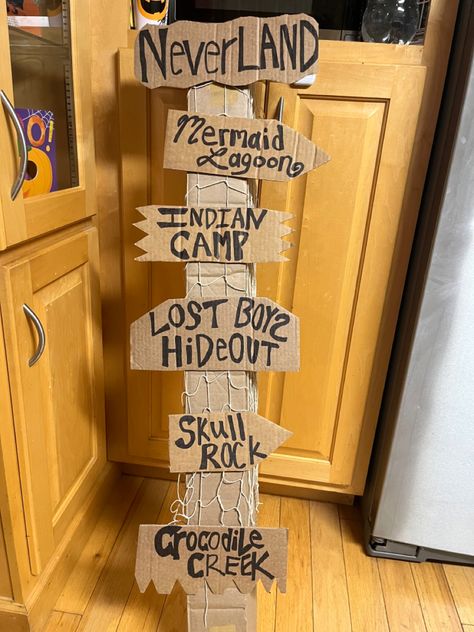 NeverLAND
Mermaid
Lagoon
INDIAN
CAMP
LOST BOYS
HiDeOUT
SKull
ROCK
CrocodiLe
CREEK